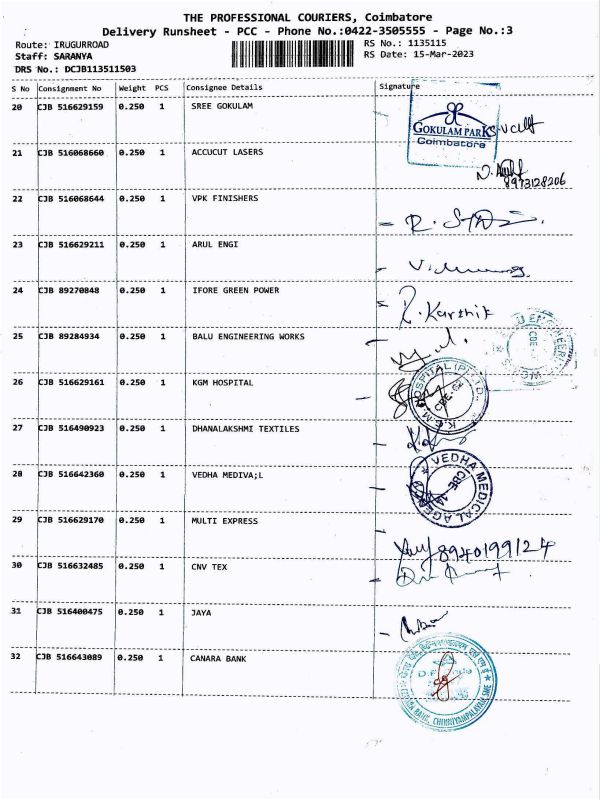 THE PROFESSIONAL COURIERS, Coimbatore
Delivery Runsheet - PCC - Phone No.:0422-3505555 - Page No.:3
Route: IRUGURROAD RS No.: 1135115
Staff: SARANYA RS Date: 15-Mar-2023
DRS No.: DCJB113511503
S No Consignment No Weight PCS Consignee Details Signature
20 CJB 516629159 0.250 1 SREE GOKULAM
GOKULAM PARK
Coimbatore
21 CJB 516068660 0.250 1 ACCUCUT LASERS
8973128206
22 CJB 516068644 0.250 1 VPK FINISHERS
23 CJB 516629211 0.250 1 ARUL ENGI
24 CJB 89270848 0.250 1 IFORE GREEN POWER
R. Karthik
25 CJB 89284934 0.250 1 BALU ENGINEERING WORKS
26 CJB 516629161 0.250 1 KGM HOSPITAL
27 CJB 516490923 0.250 1 DHANALAKSHMI TEXTILES
28 CJB 516642360 0.250 1 VEDHA MEDIVA;L
VEDHA MEDICAL AGENCY
29 CJB 516629170 0.250 1 MULTI EXPRESS
8940199124
30 CJB 516632485 0.250 1 CNV TEX
31 CJB 516400475 0.250 1 JAYA
32 CJB 516643089 0.250 1 CANARA BANK
BANK, CHINNIYAMPALAYAM SME